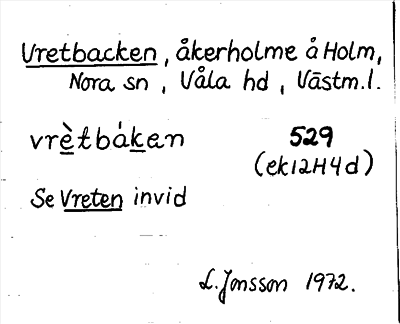 Vretbacken, åkerholme å Holm,
Nora sn, Våla hd, Västm.l.
vrètbáken 529
(ek12H4d)
Se Vreten invid
L. Jonsson 1972.